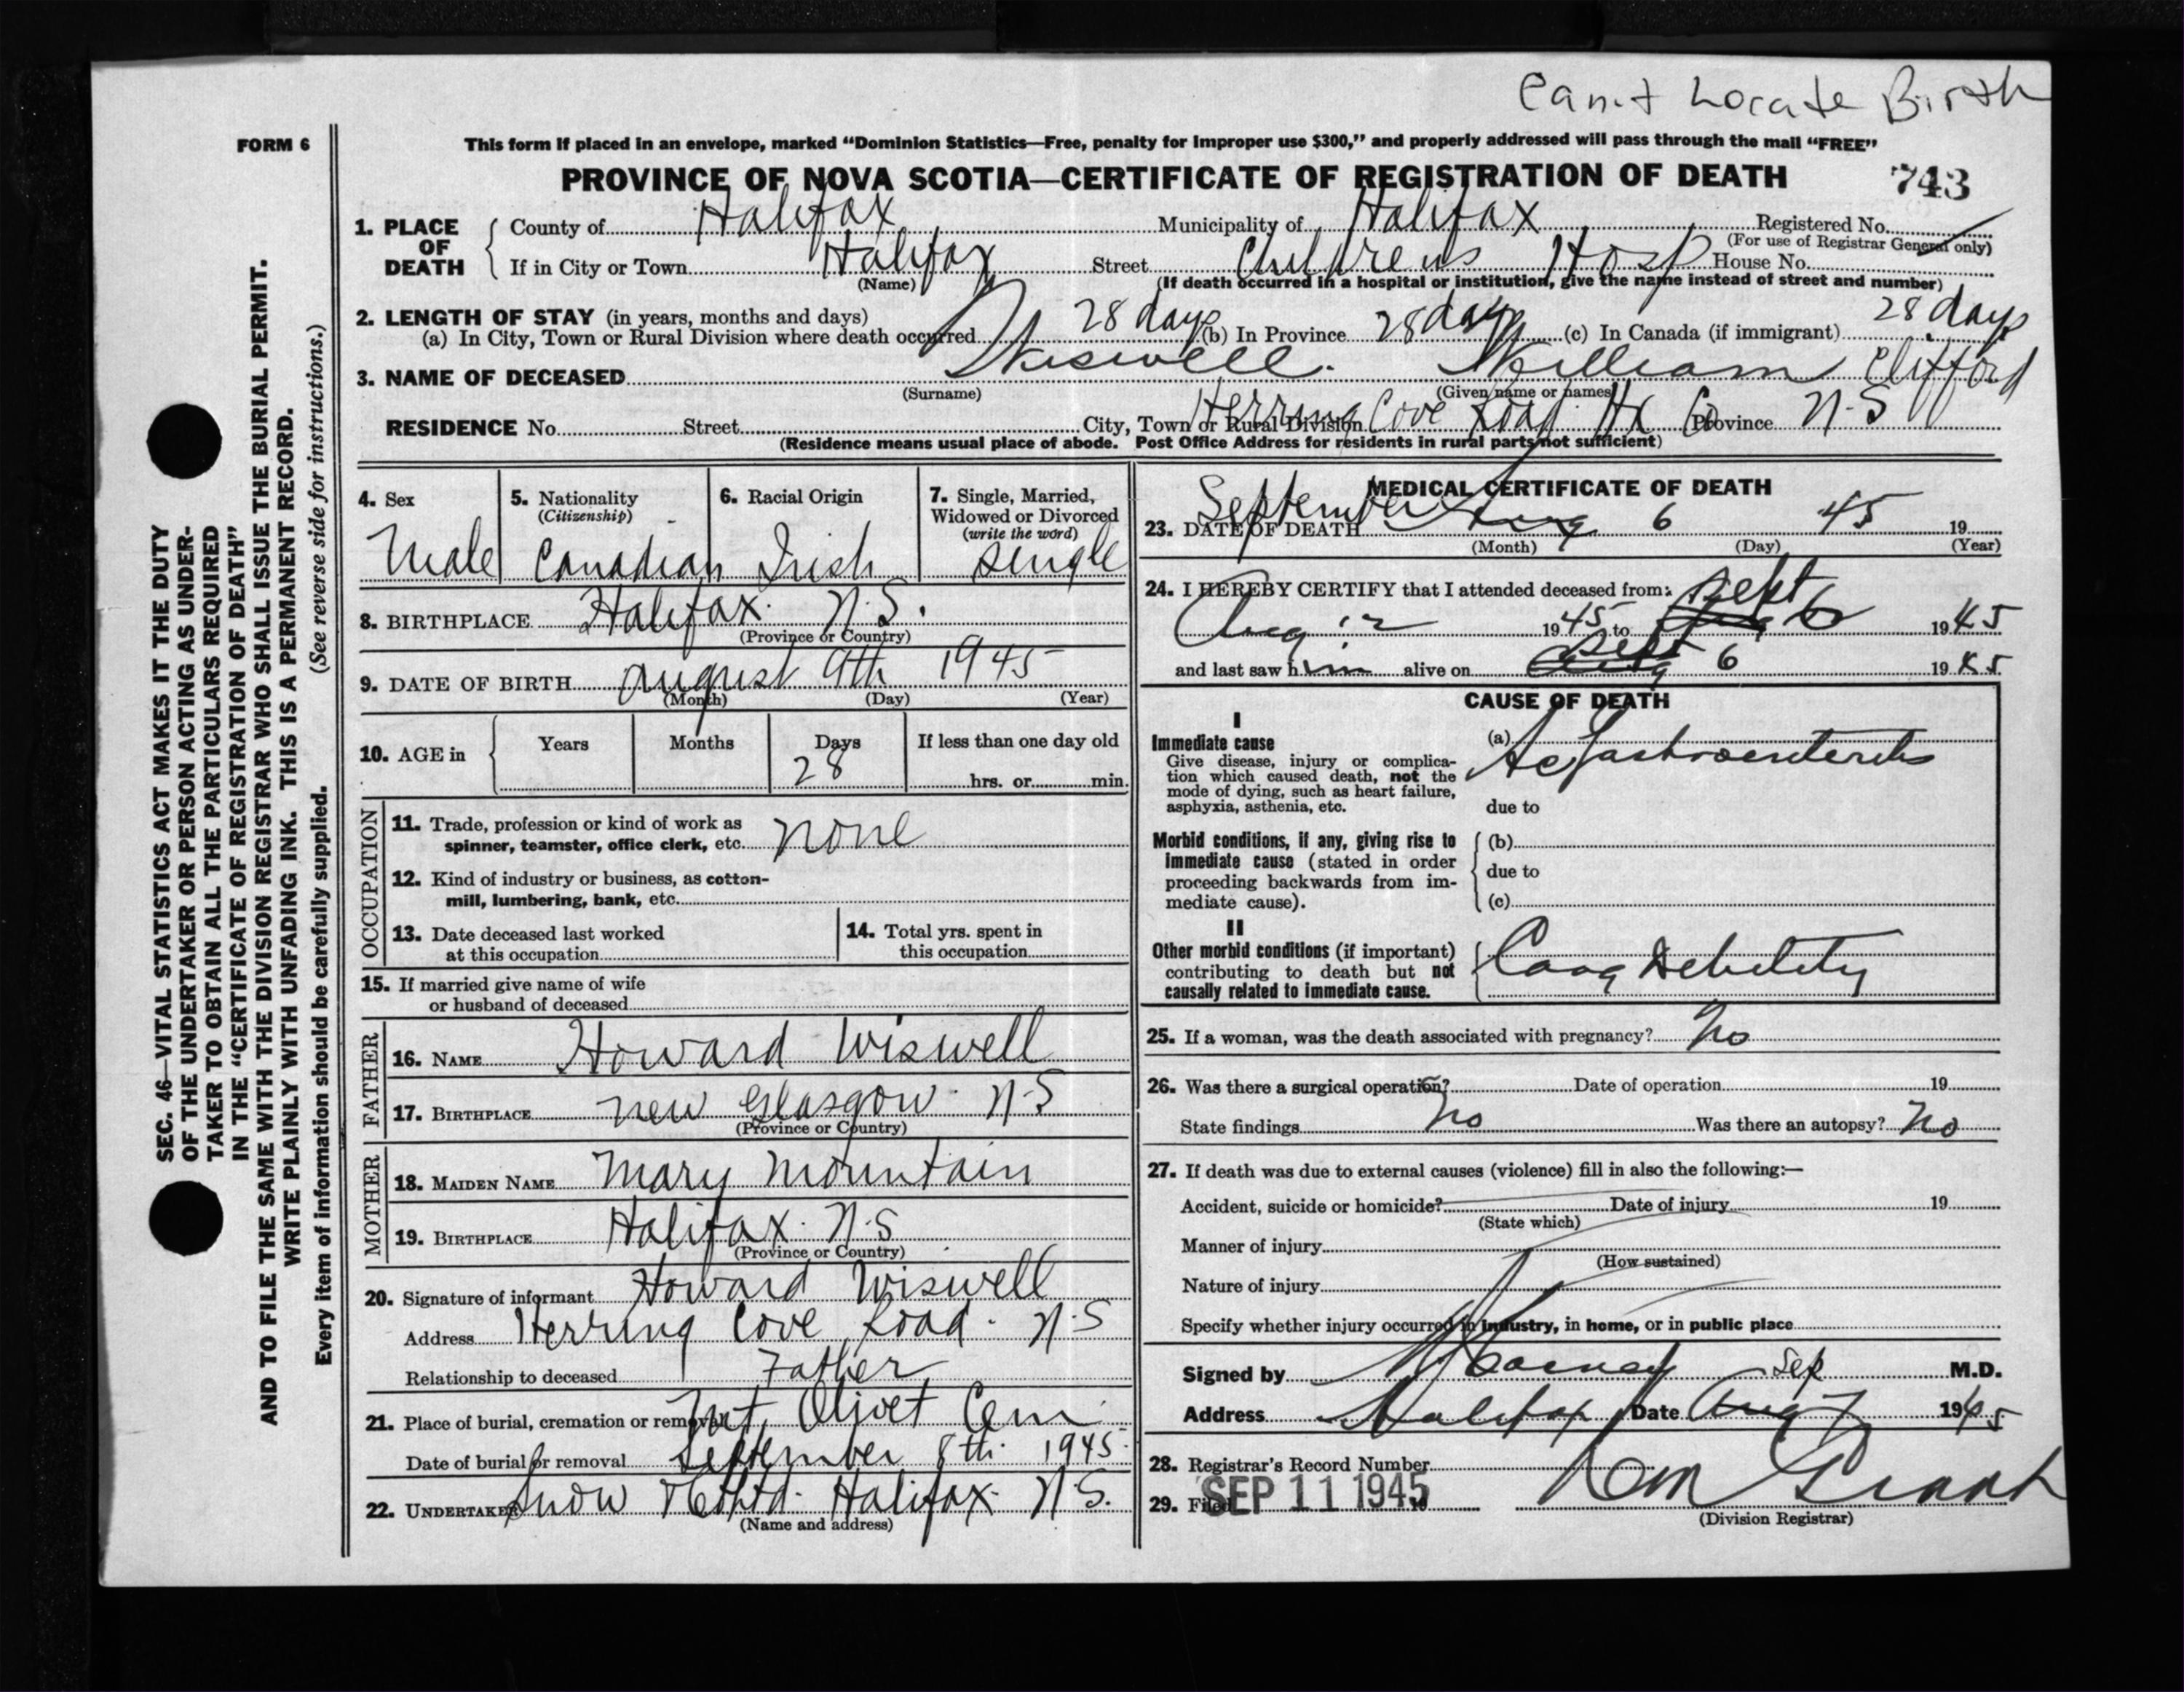 Can't Locate Birth
FORM 6
This form if placed in an envelope, marked “Dominion Statistics—Free, penalty for improper use $300,” and properly addressed will pass through the mail “FREE”
PROVINCE OF NOVA SCOTIA—CERTIFICATE OF REGISTRATION OF DEATH 743
SEC. 46—VITAL STATISTICS ACT MAKES IT THE DUTY
OF THE UNDERTAKER OR PERSON ACTING AS UNDER-
TAKER TO OBTAIN ALL THE PARTICULARS REQUIRED
IN THE “CERTIFICATE OF REGISTRATION OF DEATH”
AND TO FILE THE SAME WITH THE DIVISION REGISTRAR WHO SHALL ISSUE THE BURIAL PERMIT.
WRITE PLAINLY WITH UNFADING INK. THIS IS A PERMANENT RECORD.
Every item of information should be carefully supplied. (See reverse side for instructions.)
1. PLACE OF DEATH
County of Halifax Municipality of Halifax Registered No.
(For use of Registrar General only)
If in City or Town Halifax Street Childrens Hosp House No.
(Name) (If death occurred in a hospital or institution, give the name instead of street and number)
2. LENGTH OF STAY (in years, months and days)
(a) In City, Town or Rural Division where death occurred 28 days (b) In Province 28 days (c) In Canada (if immigrant) 28 days
3. NAME OF DECEASED Wiswell. William Clifford
(Surname) (Given name or names)
RESIDENCE No. Street City, Town or Rural Division Herring Cove Road Hx Co Province N.S
(Residence means usual place of abode. Post Office Address for residents in rural parts not sufficient)
4. Sex Male
5. Nationality (Citizenship) Canadian
6. Racial Origin Irish
7. Single, Married, Widowed or Divorced (write the word) single
8. BIRTHPLACE Halifax N.S.
(Province or Country)
9. DATE OF BIRTH August 9th 1945
(Month) (Day) (Year)
10. AGE in Years Months Days 28 If less than one day old hrs. or min.
OCCUPATION
11. Trade, profession or kind of work as
spinner, teamster, office clerk, etc. none
12. Kind of industry or business, as cotton-
mill, lumbering, bank, etc.
13. Date deceased last worked
at this occupation
14. Total yrs. spent in
this occupation
15. If married give name of wife
or husband of deceased
FATHER
16. NAME Howard Wiswell
17. BIRTHPLACE New Glasgow N-S
(Province or Country)
MOTHER
18. MAIDEN NAME Mary Mountain
19. BIRTHPLACE Halifax N.S
(Province or Country)
20. Signature of informant Howard Wiswell
Address Herring Cove Road. N.S
Relationship to deceased Father
21. Place of burial, cremation or removal Mt. Olivet Cem
Date of burial or removal September 8th 1945
22. UNDERTAKER Snow & Co Ltd. Halifax N.S.
(Name and address)
MEDICAL CERTIFICATE OF DEATH
23. DATE OF DEATH September Aug 6 45 19
(Month) (Day) (Year)
24. I HEREBY CERTIFY that I attended deceased from:
Aug 12 1945 to Sept 6 1945
and last saw him alive on Sept 6 1945
CAUSE OF DEATH
I
Immediate cause
Give disease, injury or complica-
tion which caused death, not the
mode of dying, such as heart failure,
asphyxia, asthenia, etc.
(a) Ac Gastroenteritis
due to
Morbid conditions, if any, giving rise to
immediate cause (stated in order
proceeding backwards from im-
mediate cause).
(b)
due to
(c)
II
Other morbid conditions (if important)
contributing to death but not
causally related to immediate cause.
Cong Debility
25. If a woman, was the death associated with pregnancy? No
26. Was there a surgical operation? Date of operation 19
State findings No Was there an autopsy? No
27. If death was due to external causes (violence) fill in also the following:—
Accident, suicide or homicide? Date of injury 19
(State which)
Manner of injury
(How sustained)
Nature of injury
Specify whether injury occurred in industry, in home, or in public place
Signed by Sep M.D.
Address Halifax Date Aug 7 1945
28. Registrar's Record Number
29. Filed SEP 11 1945
(Division Registrar)